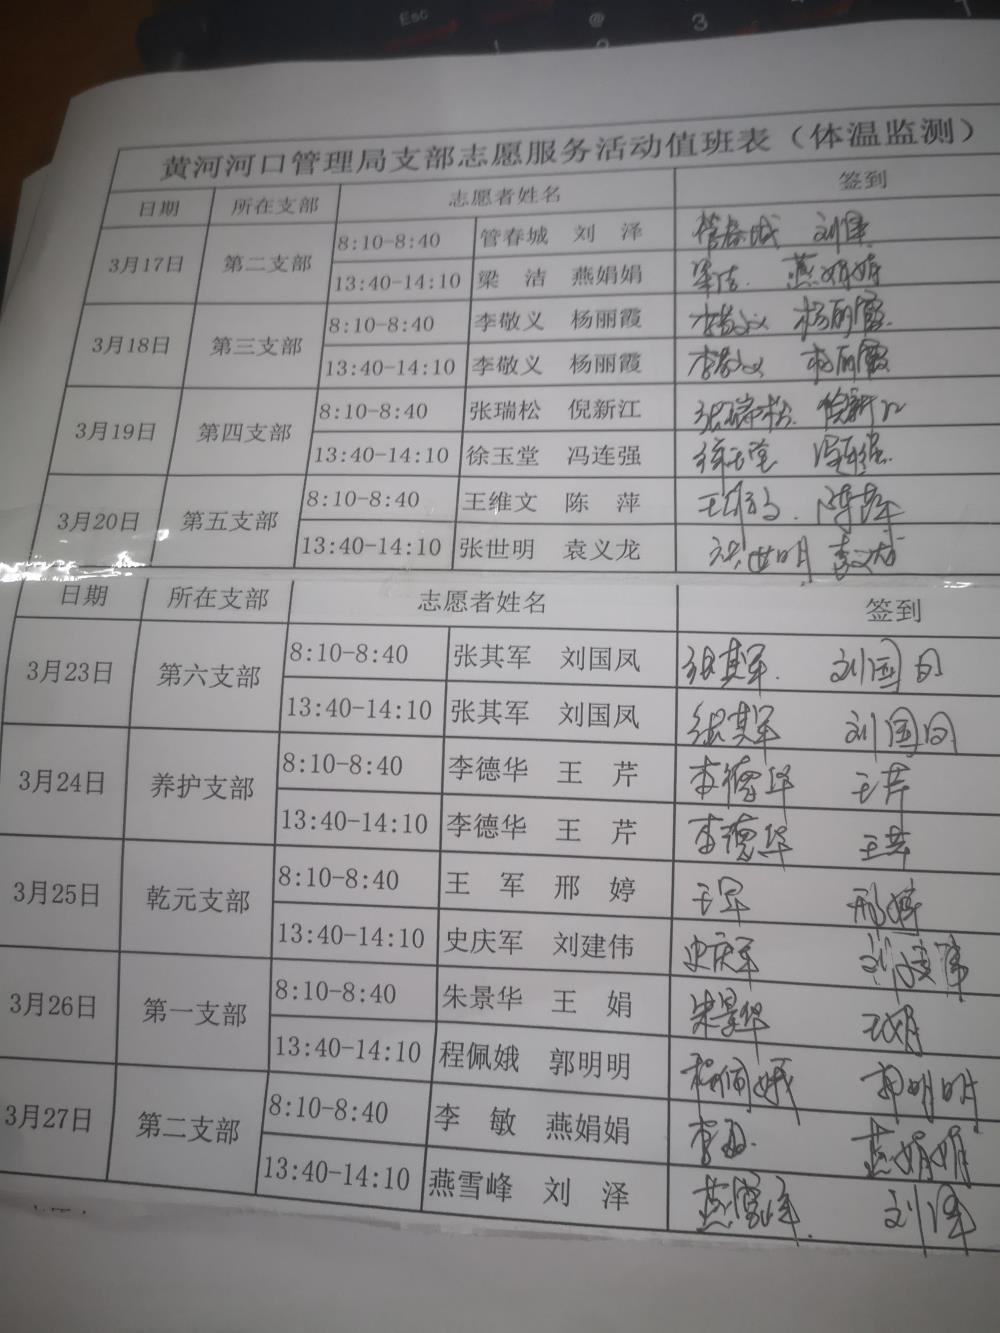 Esc
@
3
黄河河口管理局支部志愿服务活动值班表（体温监测）
日期 所在支部 志愿者姓名 签到
3月17日 第二支部 8:10-8:40 管春城 刘 泽 管春城 刘泽
13:40-14:10 梁 洁 燕娟娟 梁洁 燕娟娟
3月18日 第三支部 8:10-8:40 李敬义 杨丽霞 李敬义 杨丽霞
13:40-14:10 李敬义 杨丽霞 李敬义 杨丽霞
3月19日 第四支部 8:10-8:40 张瑞松 倪新江 张瑞松 倪新江
13:40-14:10 徐玉堂 冯连强 徐玉堂 冯连强
3月20日 第五支部 8:10-8:40 王维文 陈 萍 王维文 陈萍
13:40-14:10 张世明 袁义龙 张世明 袁义龙
日期 所在支部 志愿者姓名 签到
3月23日 第六支部 8:10-8:40 张其军 刘国凤 张其军 刘国凤
13:40-14:10 张其军 刘国凤 张其军 刘国凤
3月24日 养护支部 8:10-8:40 李德华 王 芹 李德华 王芹
13:40-14:10 李德华 王 芹 李德华 王芹
3月25日 乾元支部 8:10-8:40 王 军 邢 婷 王军 邢婷
13:40-14:10 史庆军 刘建伟 史庆军 刘建伟
3月26日 第一支部 8:10-8:40 朱景华 王 娟 朱景华 王娟
13:40-14:10 程佩娥 郭明明 程佩娥 郭明明
3月27日 第二支部 8:10-8:40 李 敏 燕娟娟 李敏 燕娟娟
13:40-14:10 燕雪峰 刘 泽 燕雪峰 刘泽